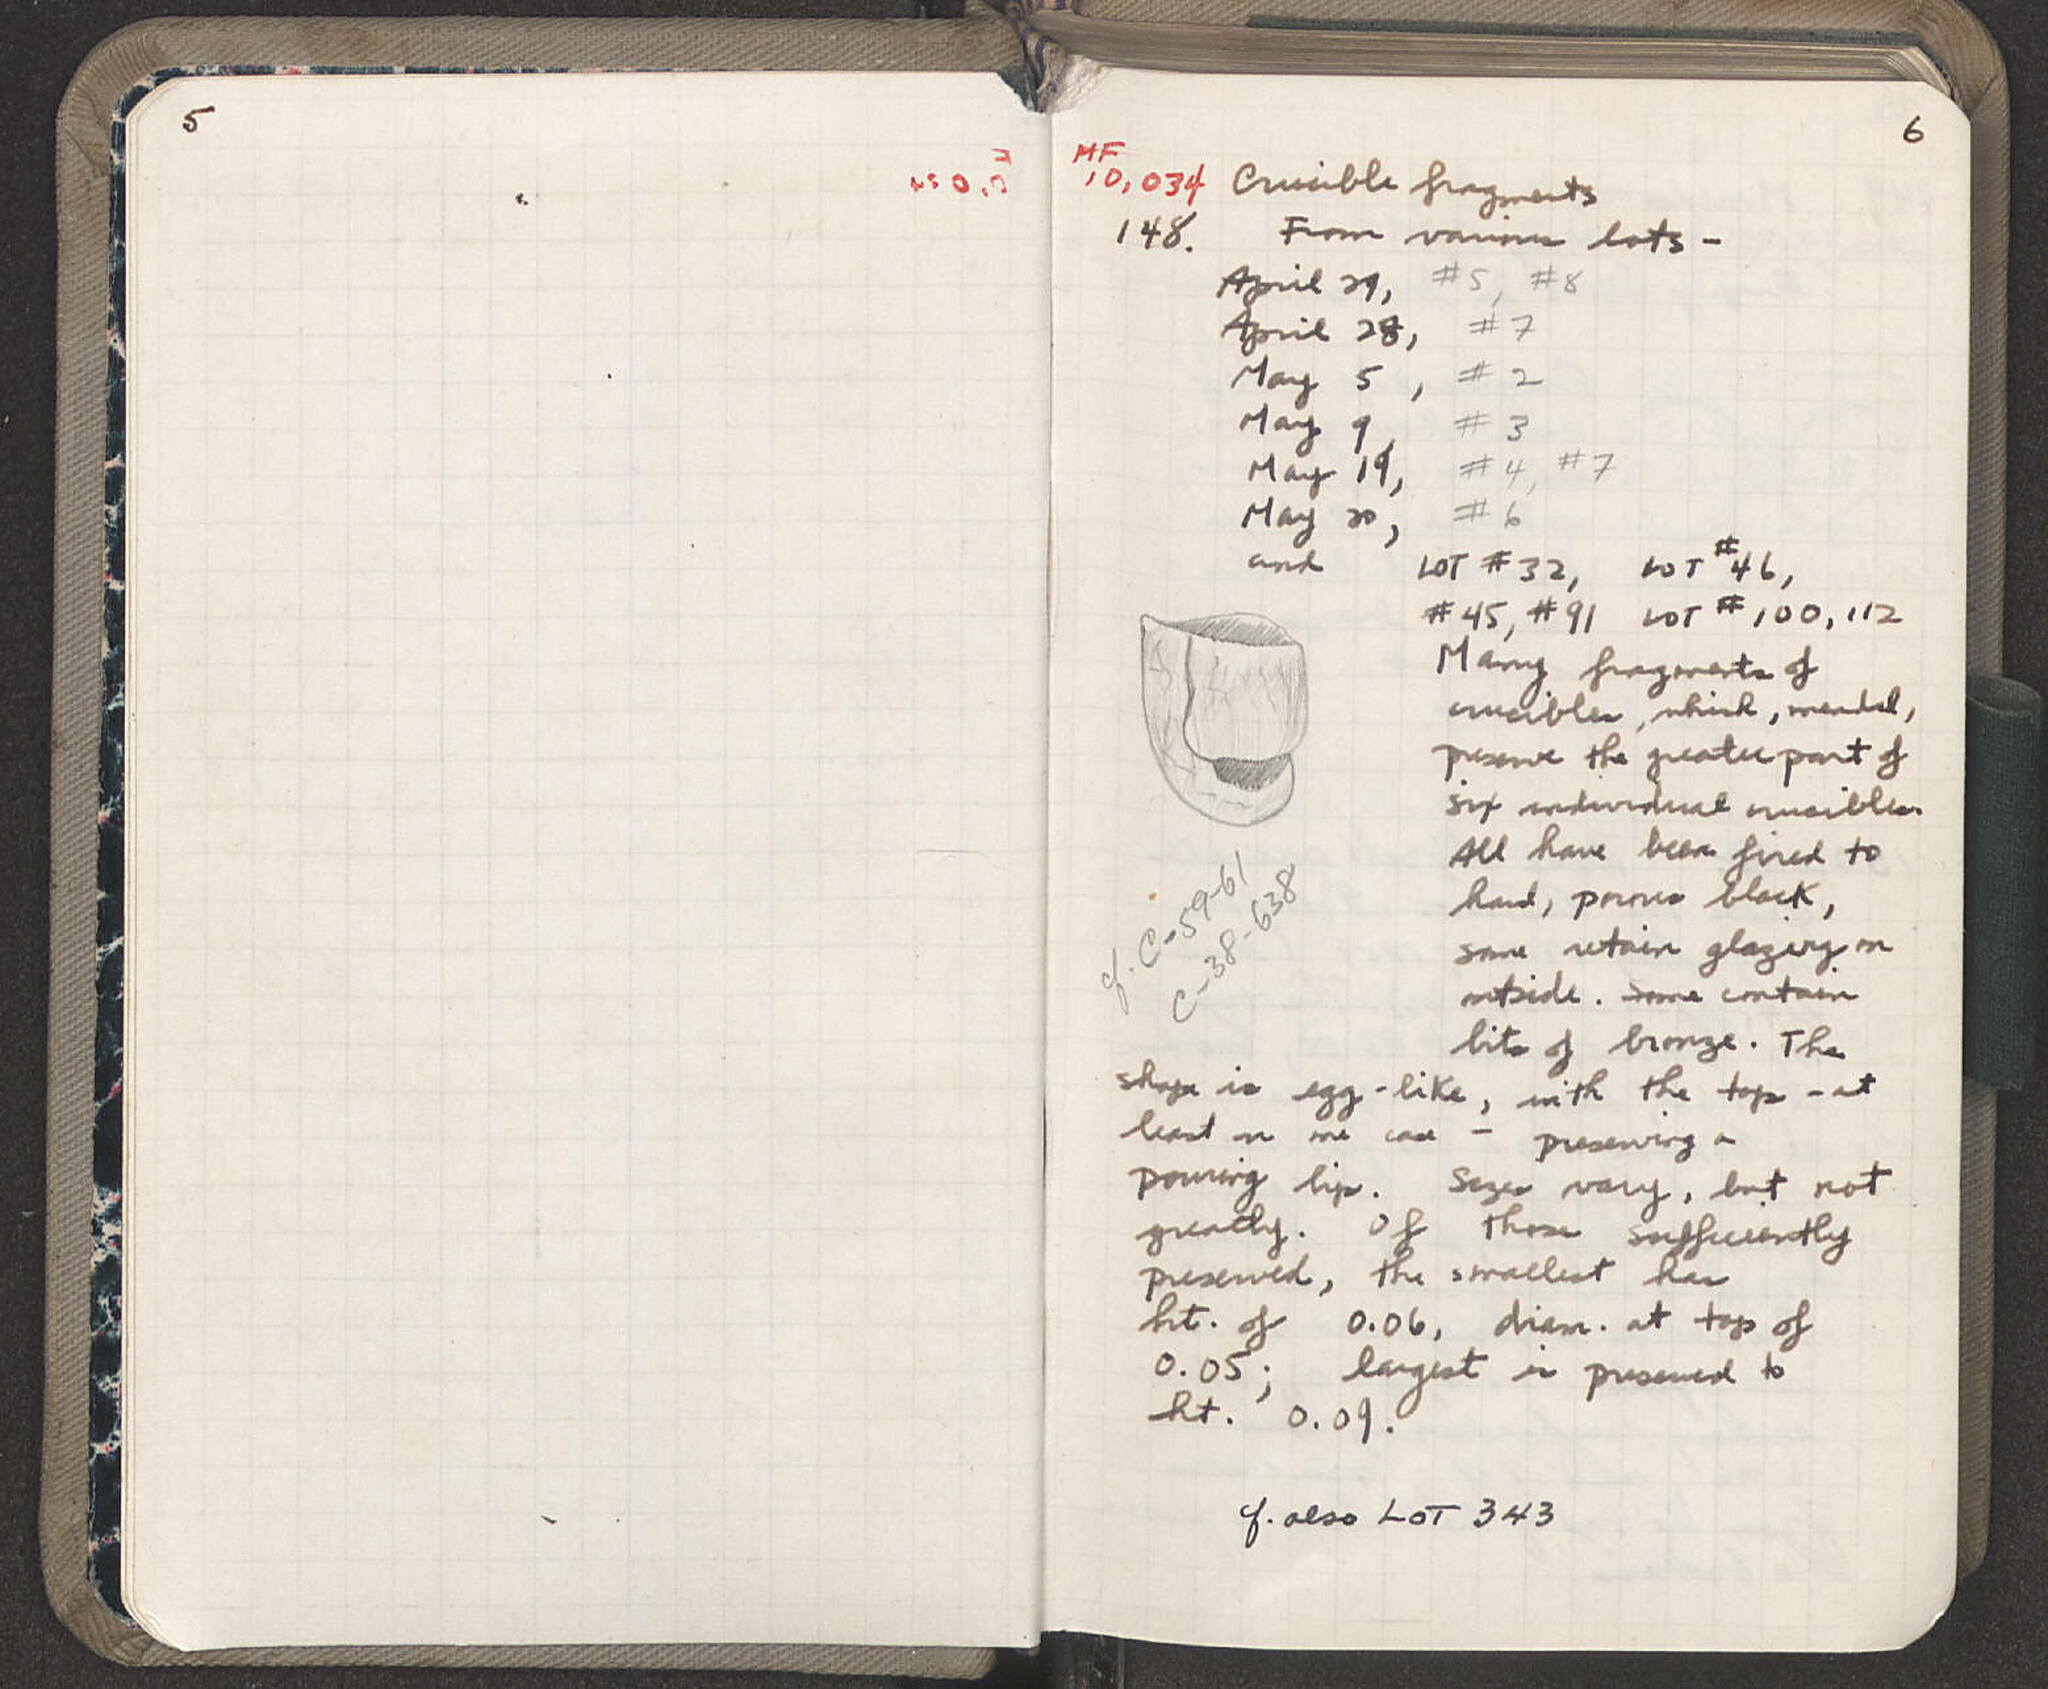 5
6
MF
10,034 Crucible fragments
148. From various lots -
April 29, #5, #8
April 28, #7
May 5, #2
May 9, #3
May 19, #4, #7
May 20, #6
and LOT #32, LOT #46,
#45, #91 LOT #100, 112
Many fragments of
crucibles, which, mended,
preserve the greater part of
six individual crucibles.
All have been fired to
hard, porous black,
some retain glazing on
outside. Some contain
bits of bronze. The
shape is egg-like, with the top - at
least in one case - preserving a
pouring lip. Sizes vary, but not
greatly. Of those sufficiently
preserved, the smallest has
ht. of 0.06, diam. at top of
0.05; largest is preserved to
ht. 0.09.
cf. C-59-61
C-38-638
cf. also LOT 343